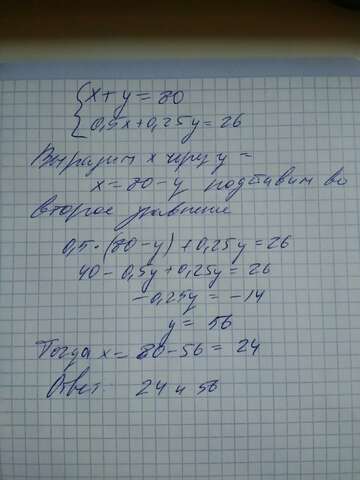 x+y=80
0,5x+0,25y=26
Выразим x через y =
x=80-y подставим во
второе уравнение
0,5·(80-y)+0,25y=26
40-0,5y+0,25y=26
-0,25y=-14
y=56
Тогда x=80-56=24
Ответ: 24 и 56